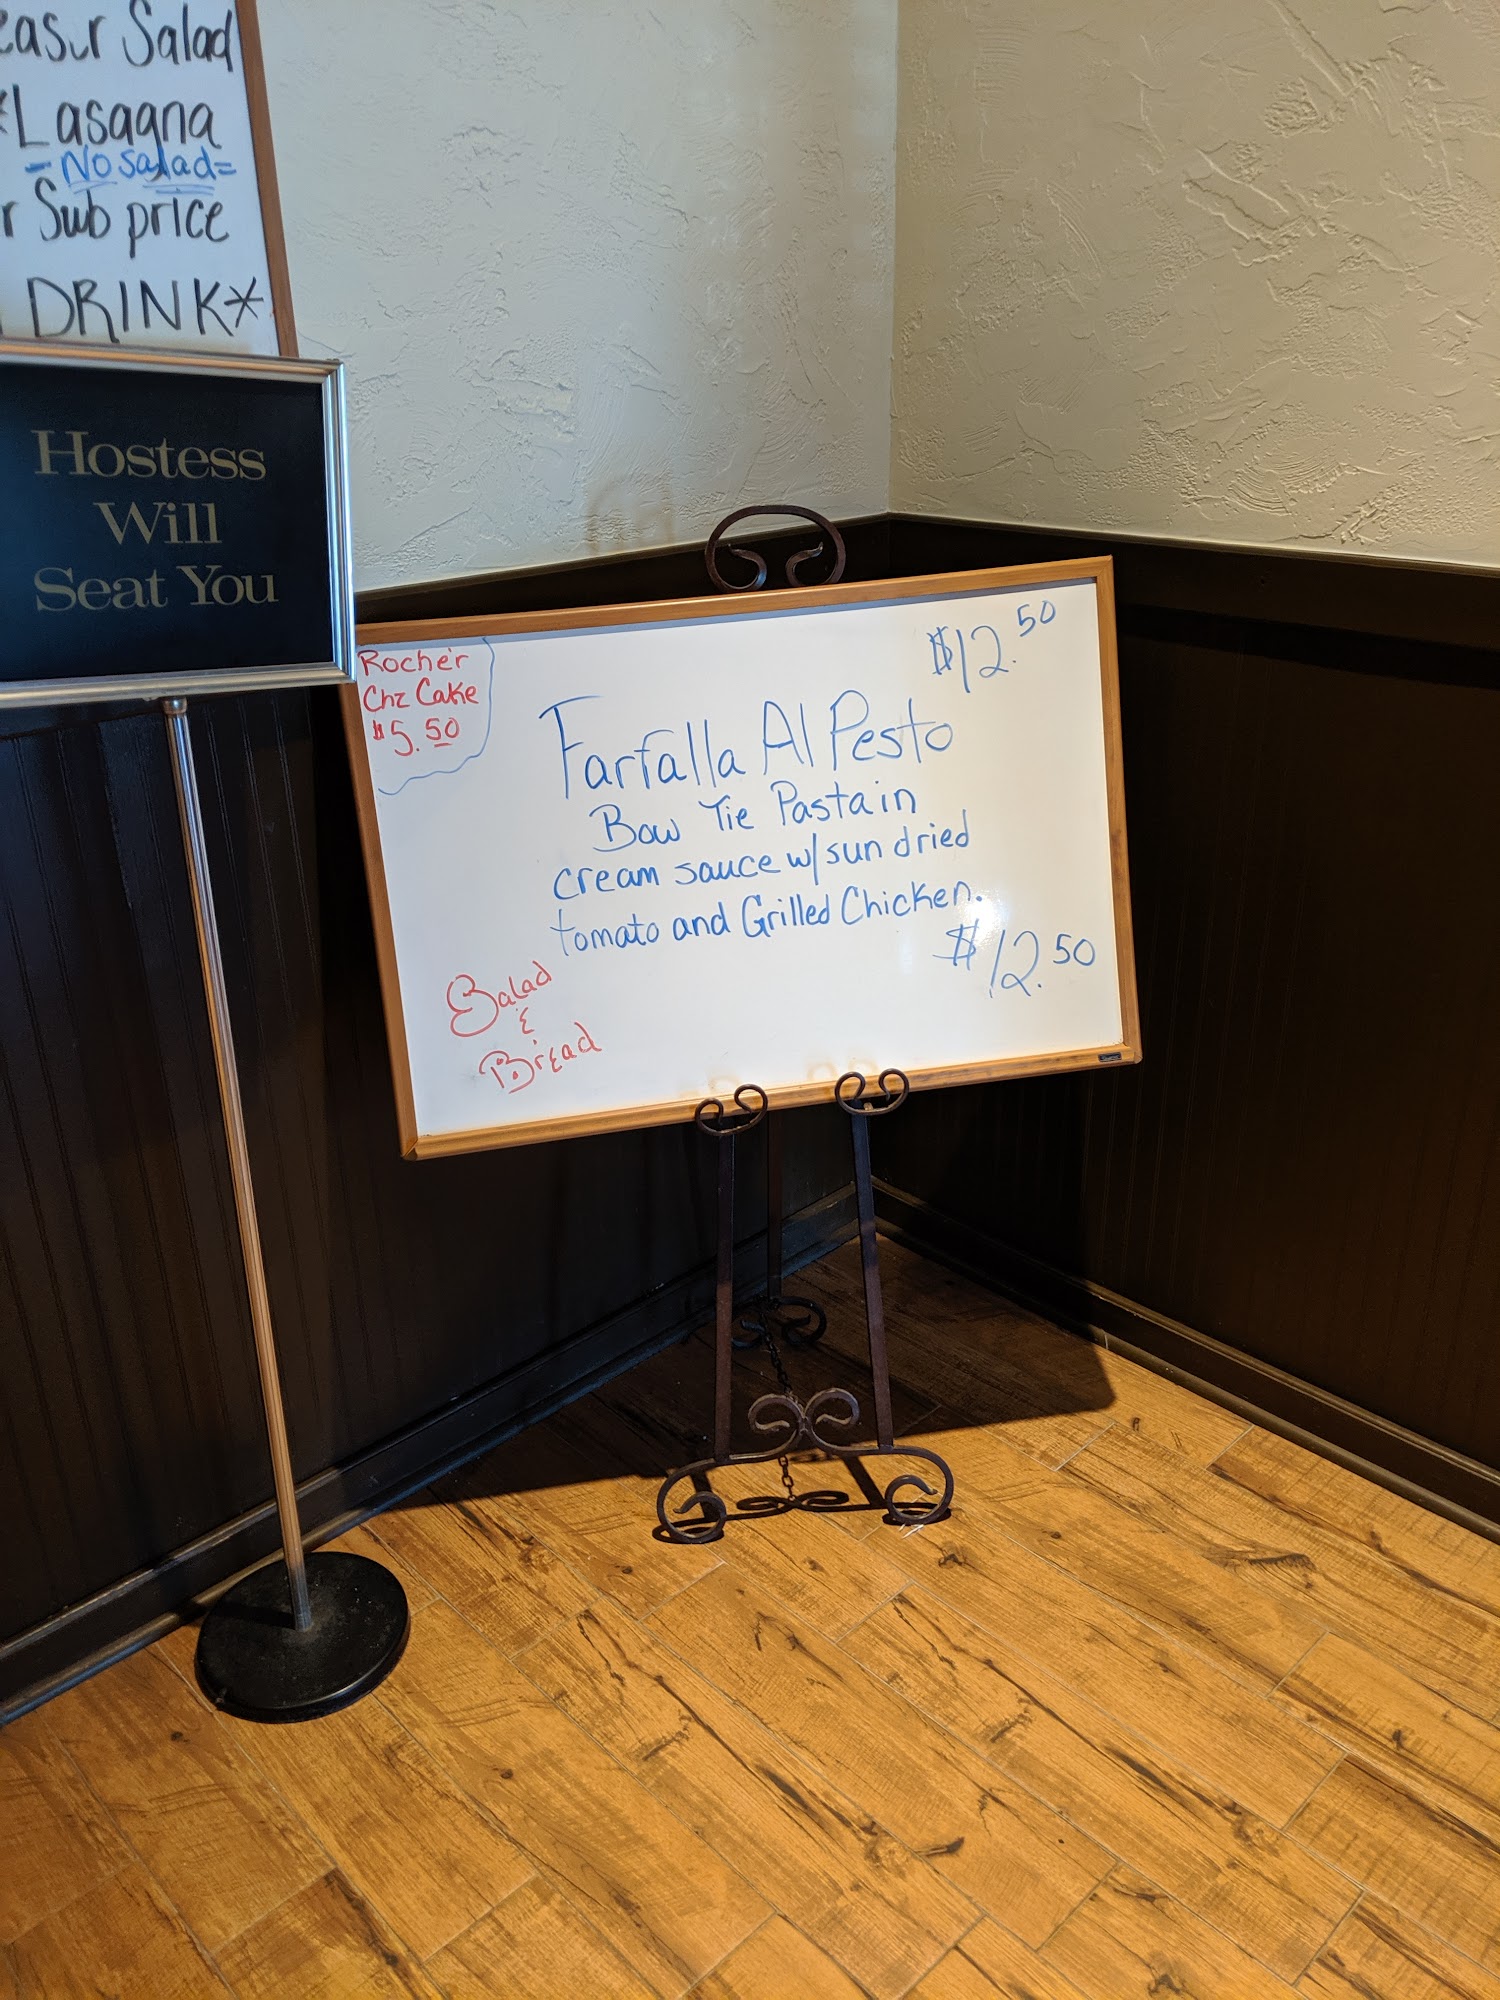 Salad
*Lasagna
-No salad=
Sub price
DRINK*
Hostess
Will
Seat You
Rocher
Chz Cake
$5.50
$12.50
Farfalla Al Pesto
Bow Tie Pasta in
cream sauce w/ sun dried
tomato and Grilled Chicken.
$12.50
Salad
&
Bread